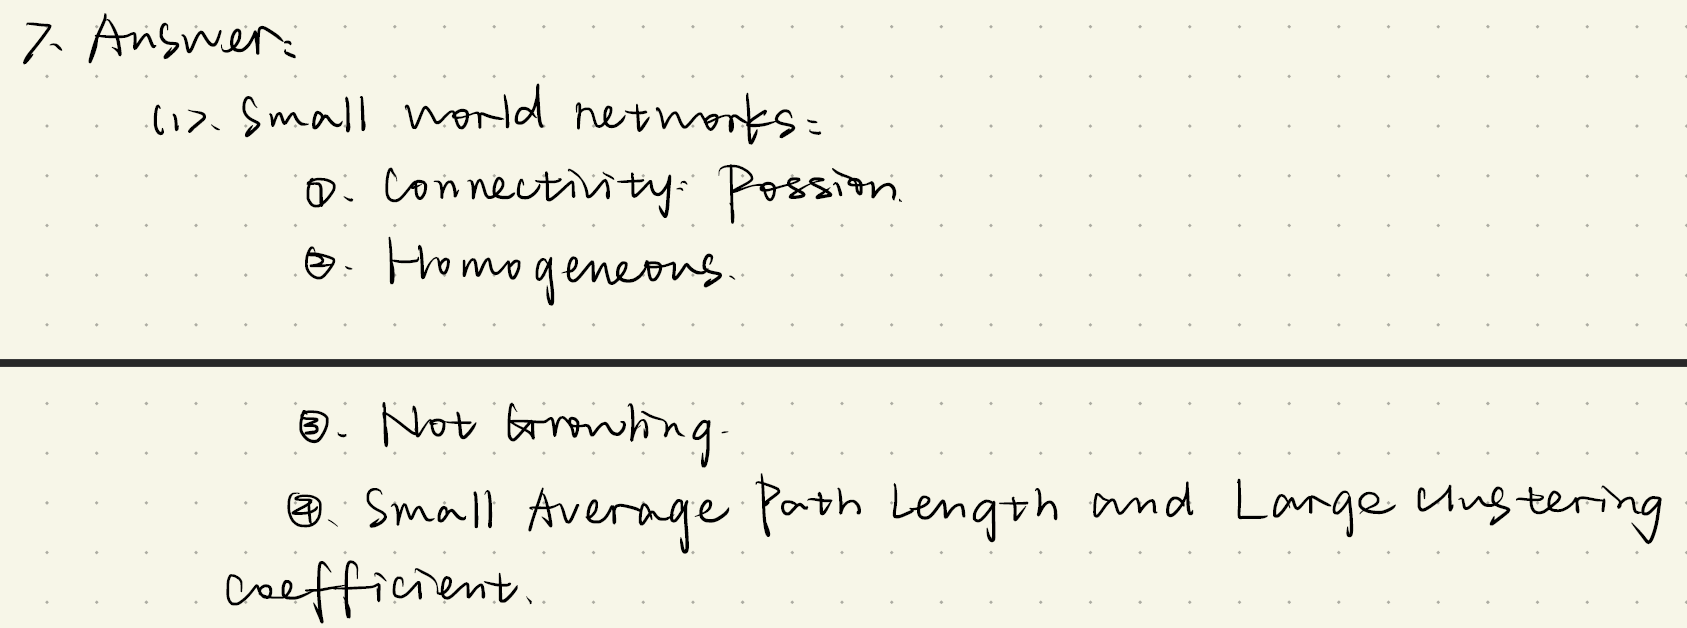 7、Answer:
(1)、Small world networks:
①. Connectivity: Possion.
②. Homogeneous.
③. Not Growting.
④、Small Average Path Length and Large clustering
coefficient.